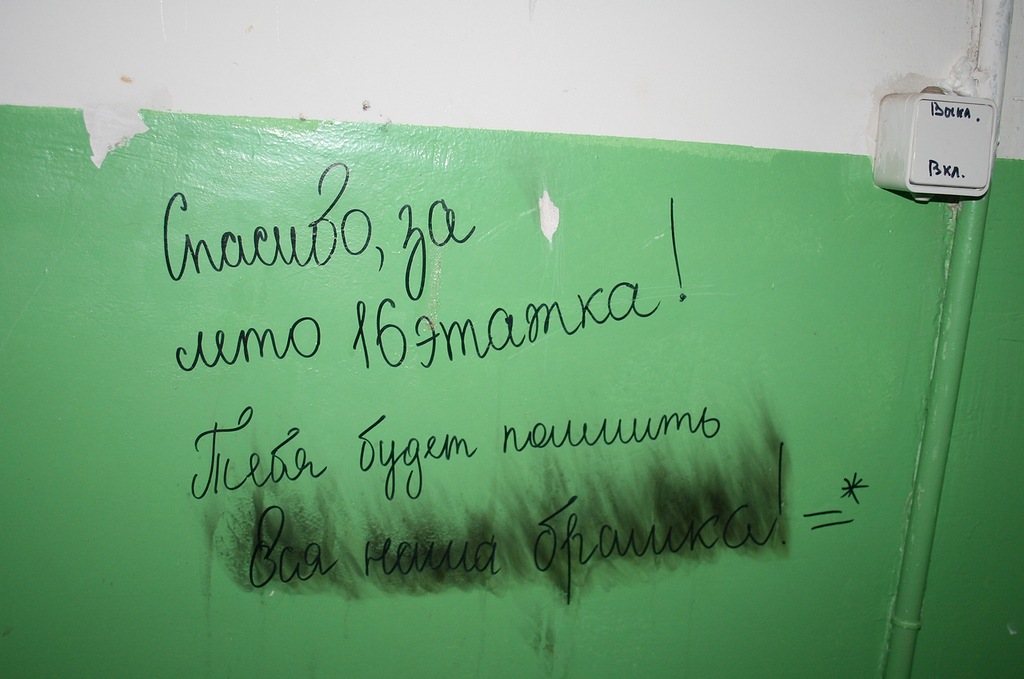 Выкл.
Вкл.
Спасибо, за
лето 16этажка!
Тебя будет помнить
Вся наша брашка! =*